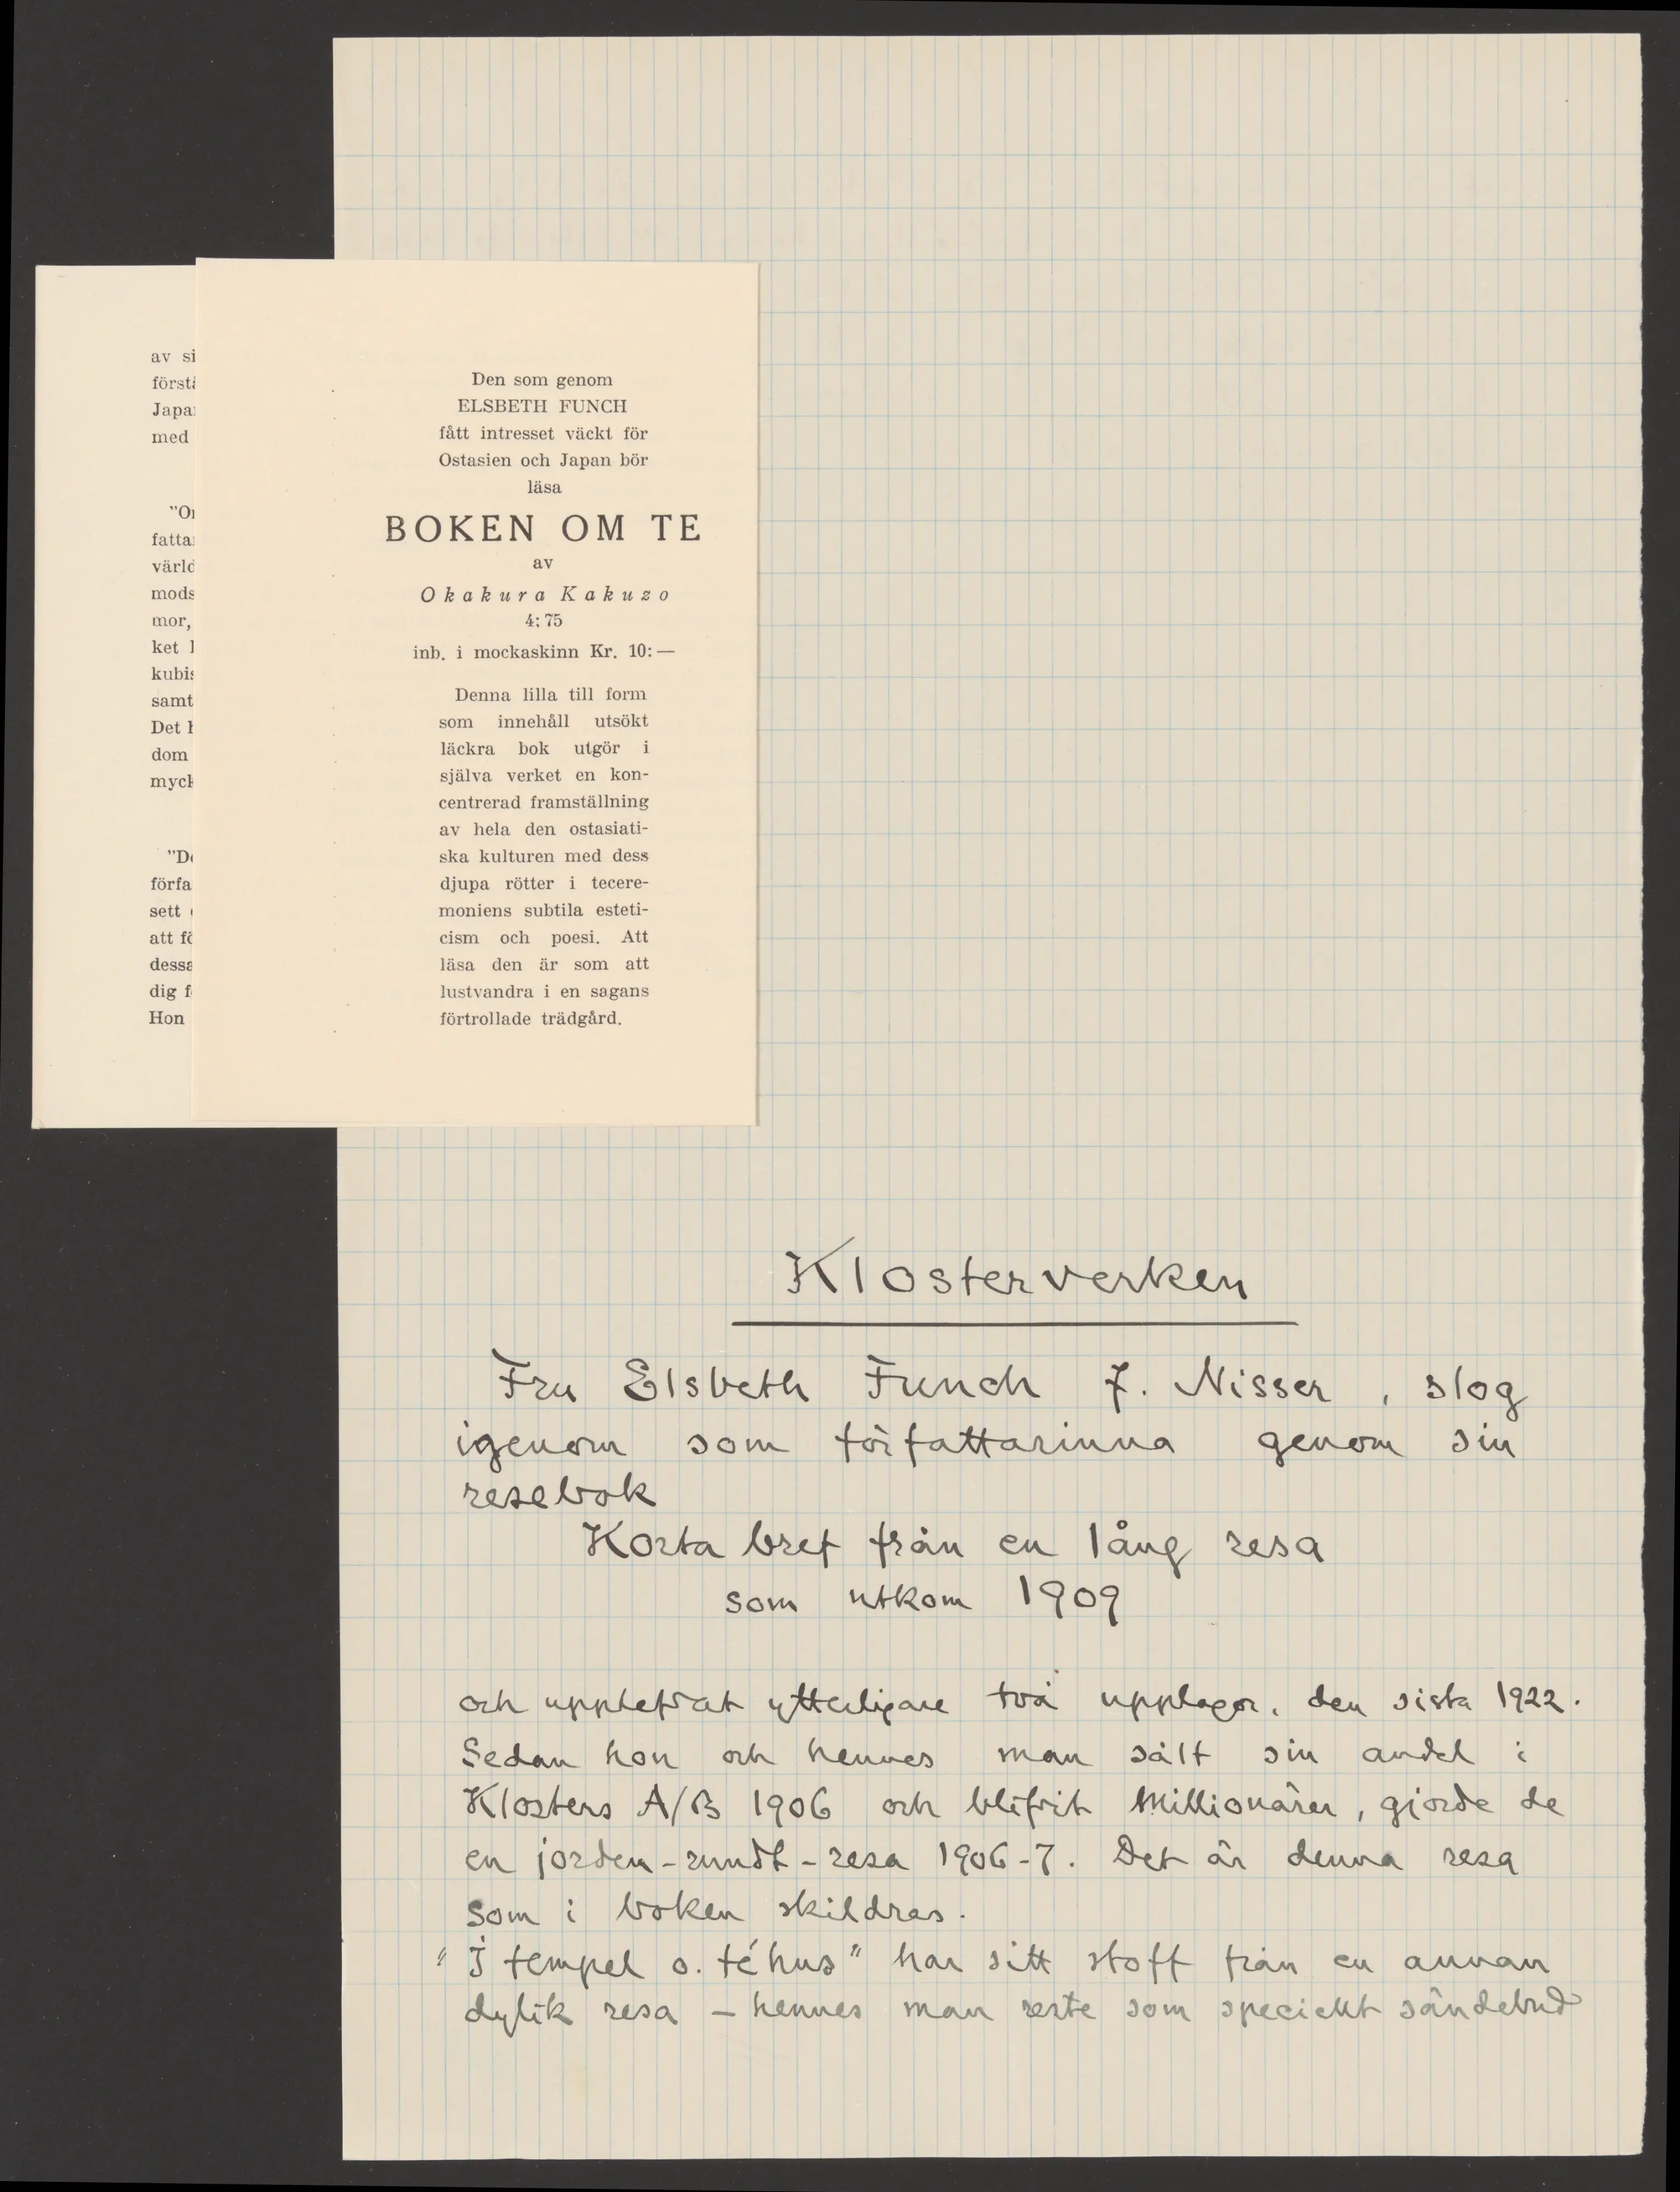 av si
förstå
Japa
med
"O
fatta
värld
mods
mor,
ket
kubis
samt
Det
dom
myck
"De
förfa
sett
att fö
dessa
dig f
Hon
Den som genom
ELSBETH FUNCH
fått intresset väckt för
Ostasien och Japan bör
läsa
BOKEN OM TE
av
Okakura Kakuzo
4:75
inb. i mockaskinn Kr. 10:—
Denna lilla till form
som innehåll utsökt
läckra bok utgör i
själva verket en kon-
centrerad framställning
av hela den ostasiati-
ska kulturen med dess
djupa rötter i tecere-
moniens subtila esteti-
cism och poesi. Att
läsa den är som att
lustvandra i en sagans
förtrollade trädgård.
Klosterverken
Fru Elsbeth Funch f. Nisser, slog
igenom som författarinna genom sin
resebok
Korta bref från en lång resa
som utkom 1909
och upplefvat ytterligare två upplagor, den sista 1922.
Sedan hon och hennes man sålt sin andel i
Klosters A/B 1906 och blifvit Millionärer, gjorde de
en jorden-rundt-resa 1906-7. Det är denna resa
som i boken skildras.
"I tempel o. téhus" har sitt stoff från en annan
dylik resa – hennes man reste som speciellt sändebud